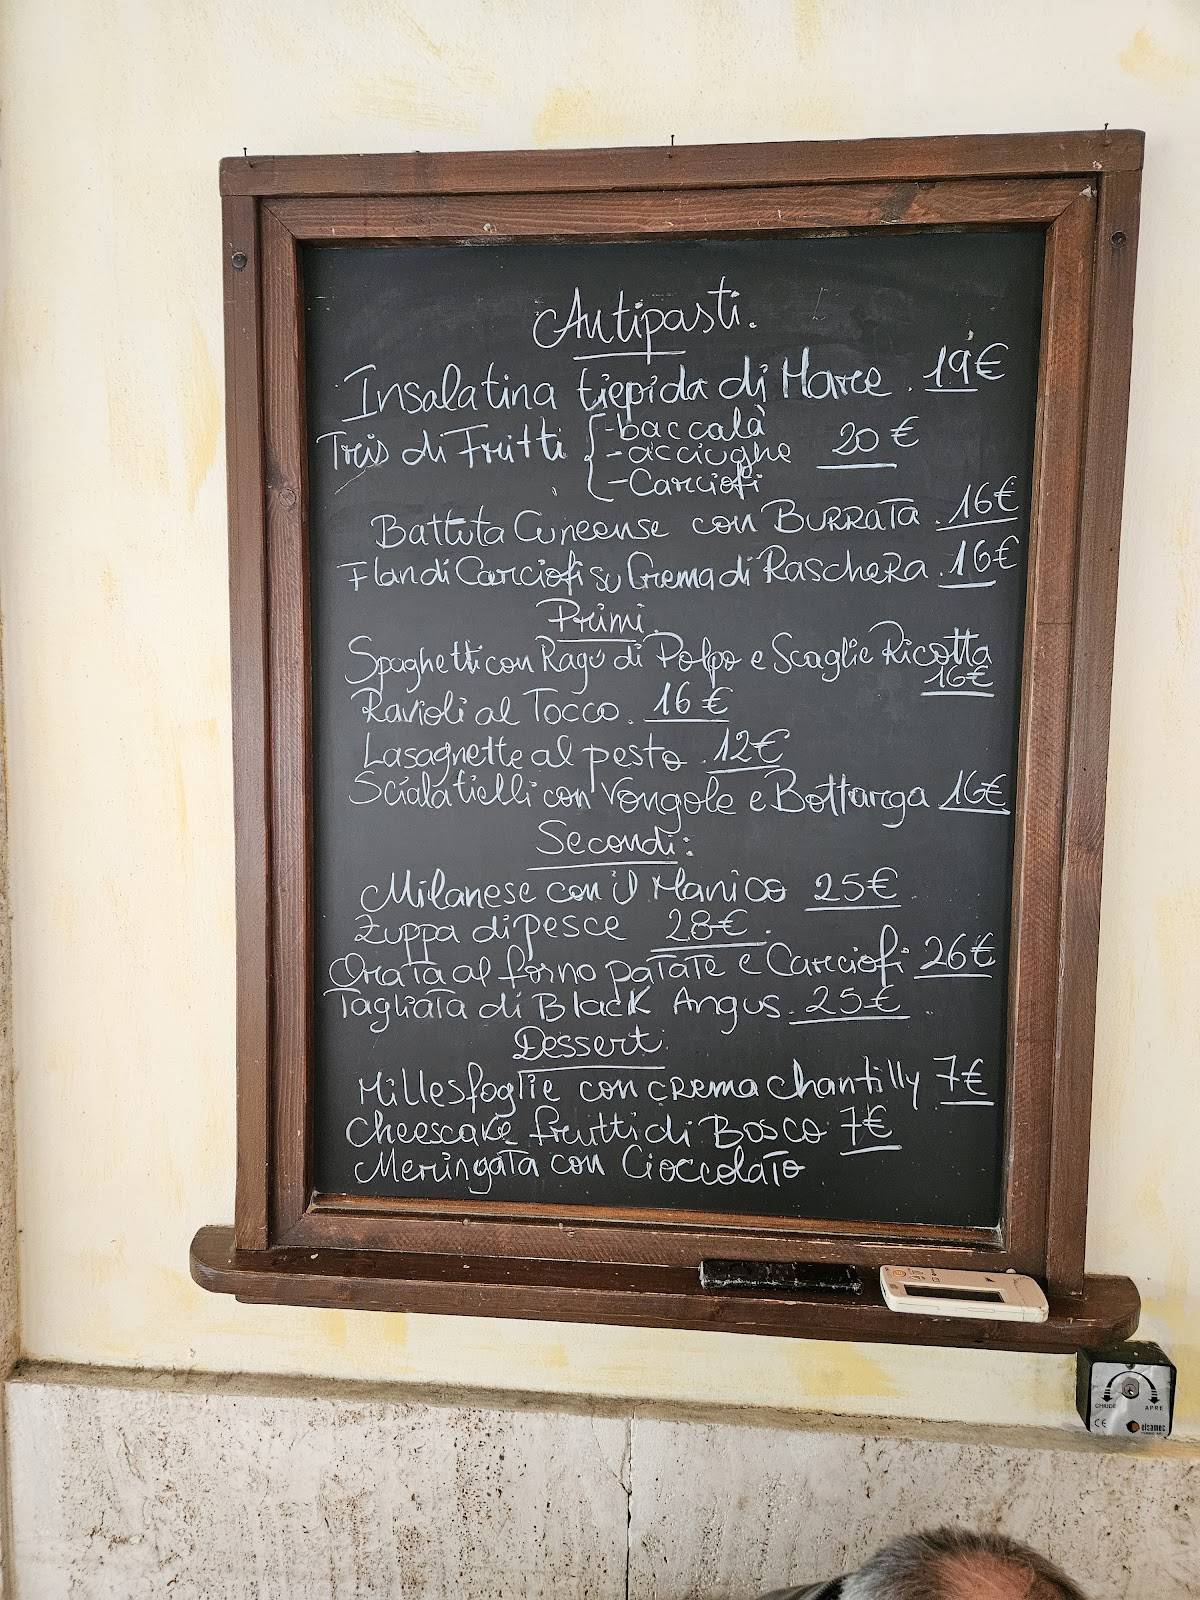 Antipasti.
Insalatina tiepida di Mare. 19€
Tris di Fritti { -baccalà 20€
-acciughe
-Carciofi
Battuta Cuneense con BURRATA. 16€
Flan di Carciofi su Crema di RascheRA. 16€
Primi.
Spaghetti con Ragù di Polpo e Scaglie Ricotta
16€
Ravioli al Tocco. 16€
Lasagnette al pesto. 12€
Scialatielli con Vongole e Bottarga 16€
Secondi:
Milanese con il Manico 25€
Zuppa di pesce 28€.
Orata al forno patate e Carciofi 26€
Tagliata di Black Angus. 25€.
Dessert
Millesfoglie con crema chantilly 7€
Cheescake frutti di Bosco 7€
Meringata con Cioccolato
CHIUDE APRE
CE elsamec